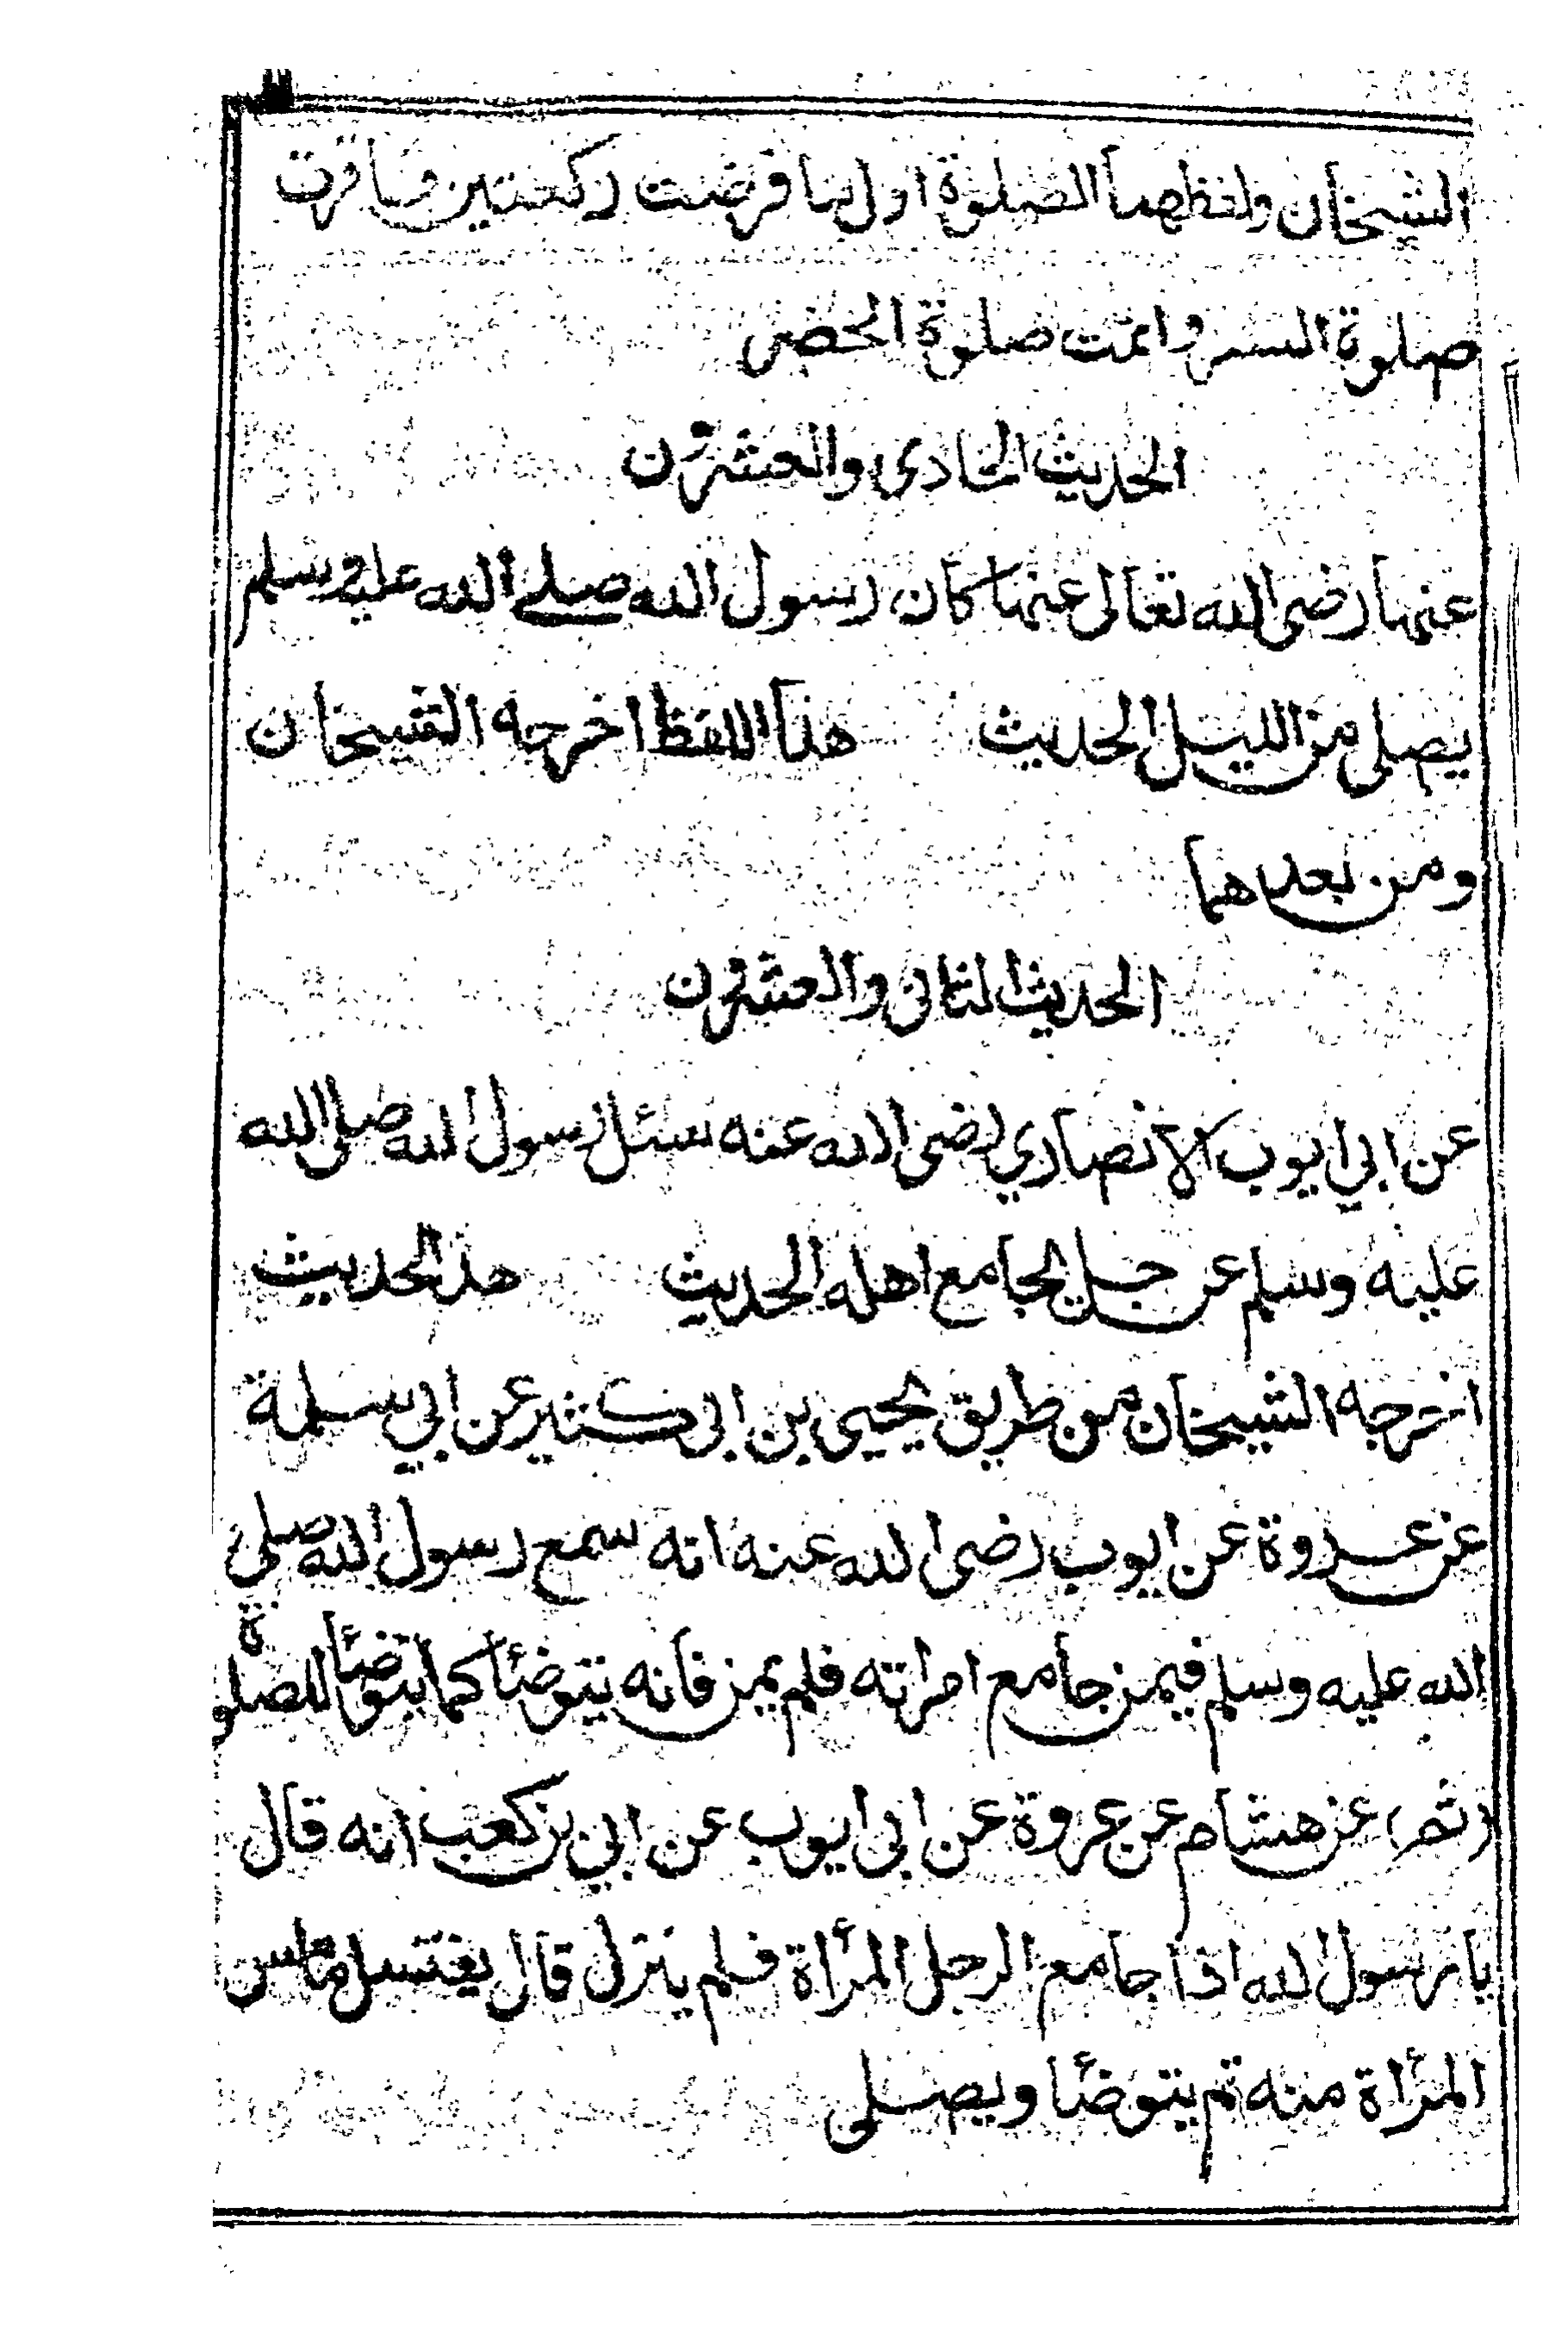 الشيخان ولفظهما الصلوة اول ما فرضت ركعتين فاقرت
صلوة السفر واتمت صلوة الحضر
الحديث الحادى والعشرون
عنها رضى الله تعالى عنها كان رسول الله صلے الله عليه وسلم
يصلى من الليل الحديث هذا اللفظ اخرجه الشيخان
ومن بعدهما
الحديث الثانى والعشرون
عن ابي ايوب الانصاري رضى الله عنه سئل رسول الله صلى الله
عليه وسلم عن رجل يجامع اهله الحديث هذ الحديث
اخرجه الشيخان من طريق يحيى بن ابى كثير عن ابي سلمة
عن عروة عن ايوب رضى الله عنه انه سمع رسول الله صلى
الله عليه وسلم فيمن جامع امراته فلم يمن فانه يتوضأ كما يتوضأ للصلوة
(ثم) عن هشام عن عروة عن ابى ايوب عن ابي بن كعب انه قال
يا رسول الله اذا جامع الرجل المرأة فلم ينزل قال يغتسل مامس
المرأة منه ثم يتوضأ ويصلى